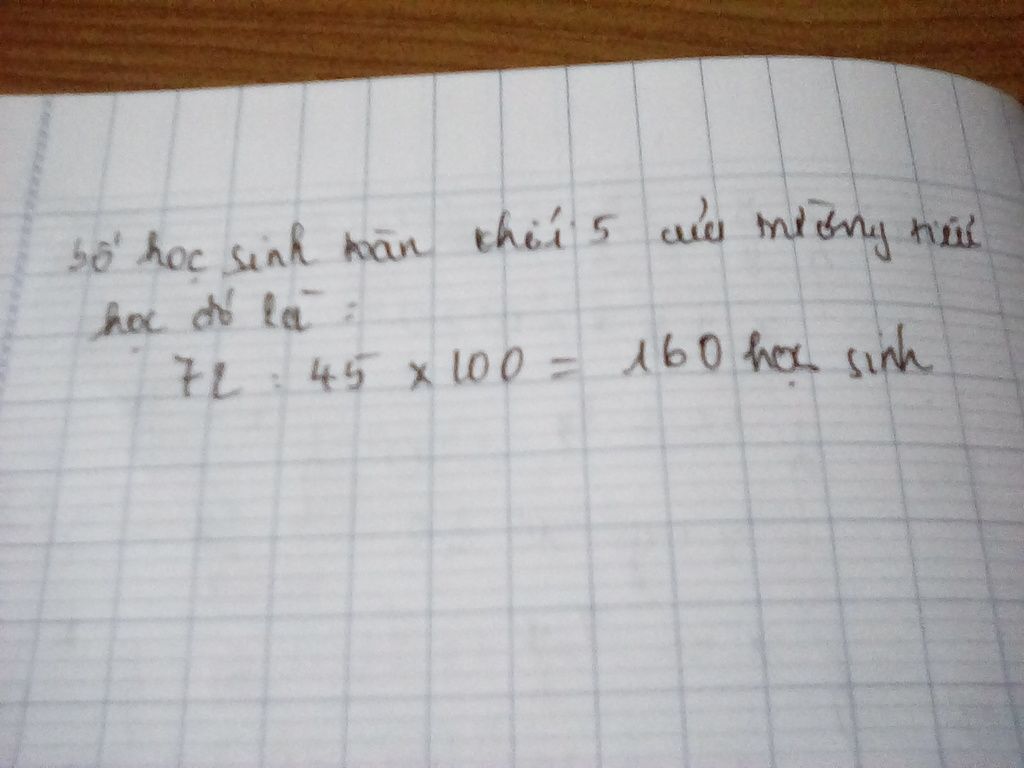 Số học sinh toàn khối 5 của trường tiểu
học đó là :
72 : 45 x 100 = 160 học sinh